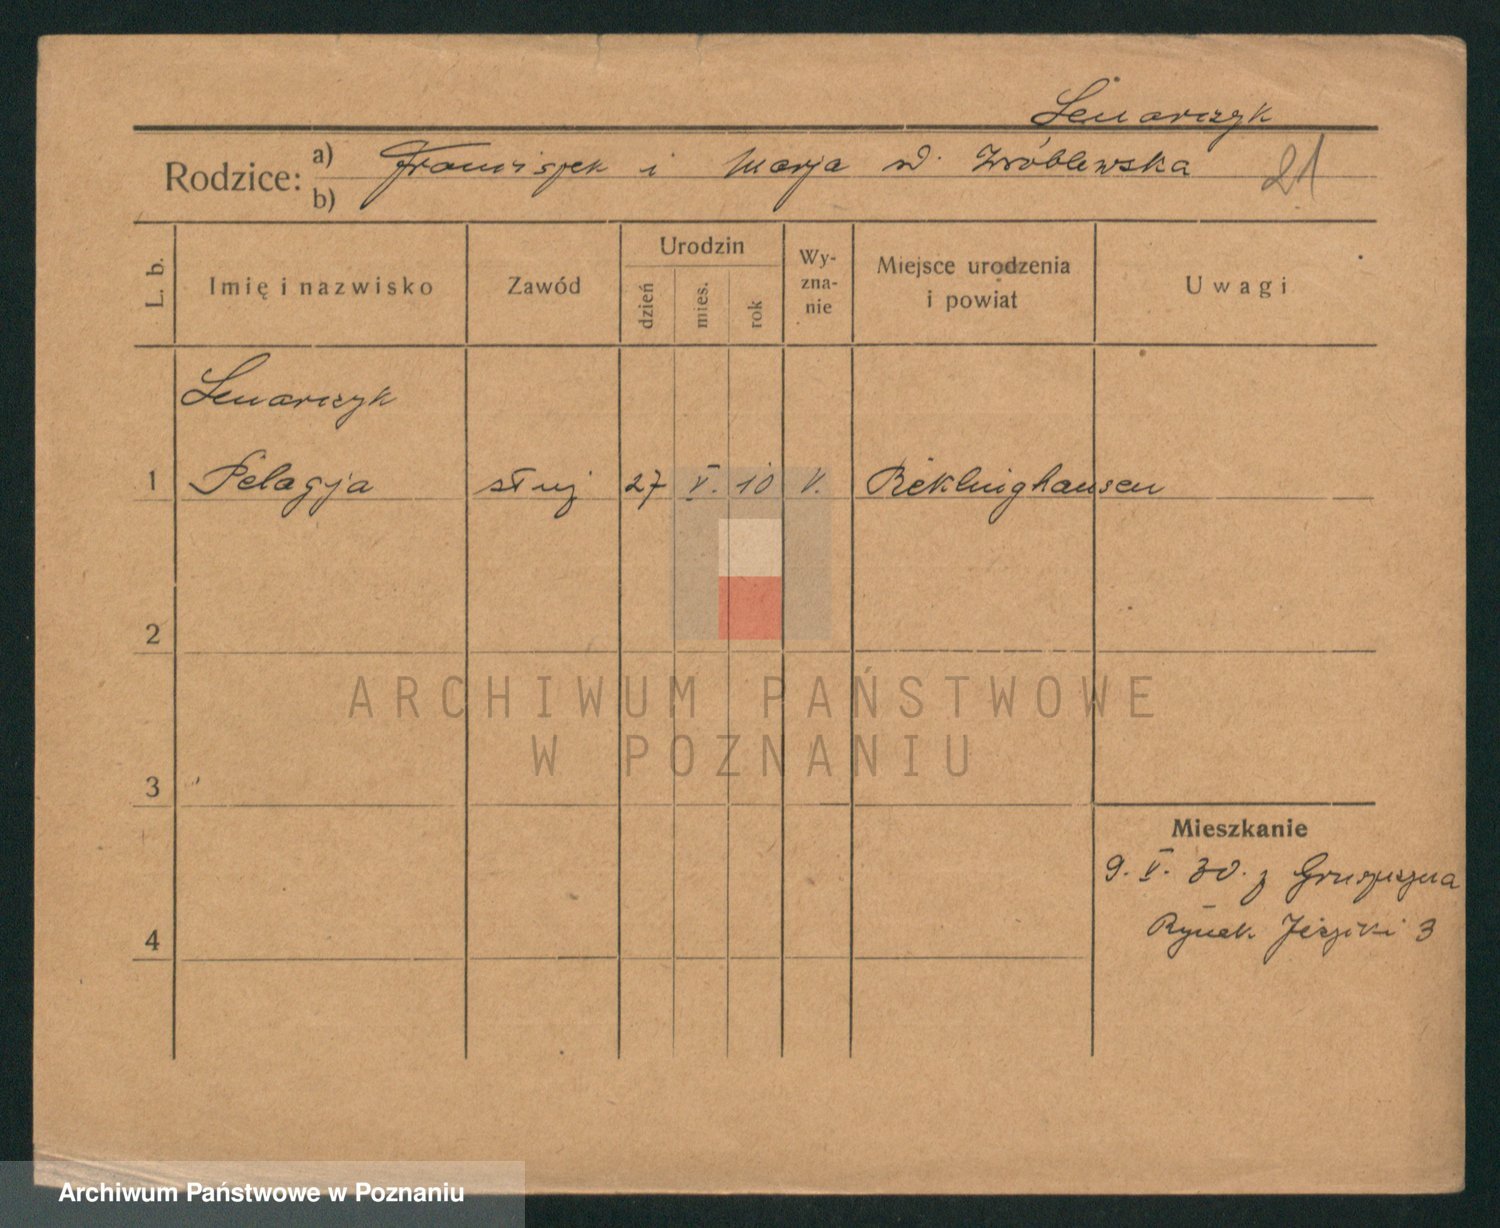 Lenarczyk
Rodzice: a) b) Franciszek i Marja d. Wróblewska 21
L. b.
Imię i nazwisko
Zawód
Urodzin
dzień
mies.
rok
Wy-
zna-
nie
Miejsce urodzenia
i powiat
Uwagi
Lenarczyk
1 Pelagja służ 27 V. 10 Reklinghausen
2
ARCHIWUM PAŃSTWOWE
W POZNANIU
3
Mieszkanie
9. V. 30. z
4 Rynek Jeżycki 3
Archiwum Państwowe w Poznaniu